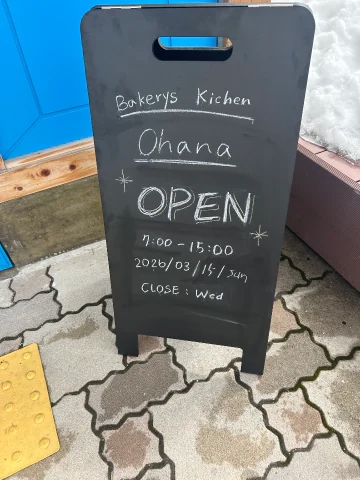 Bakerys Kichen
Ohana
OPEN
7:00 - 15:00
2026/03/15/sun
CLOSE : Wed